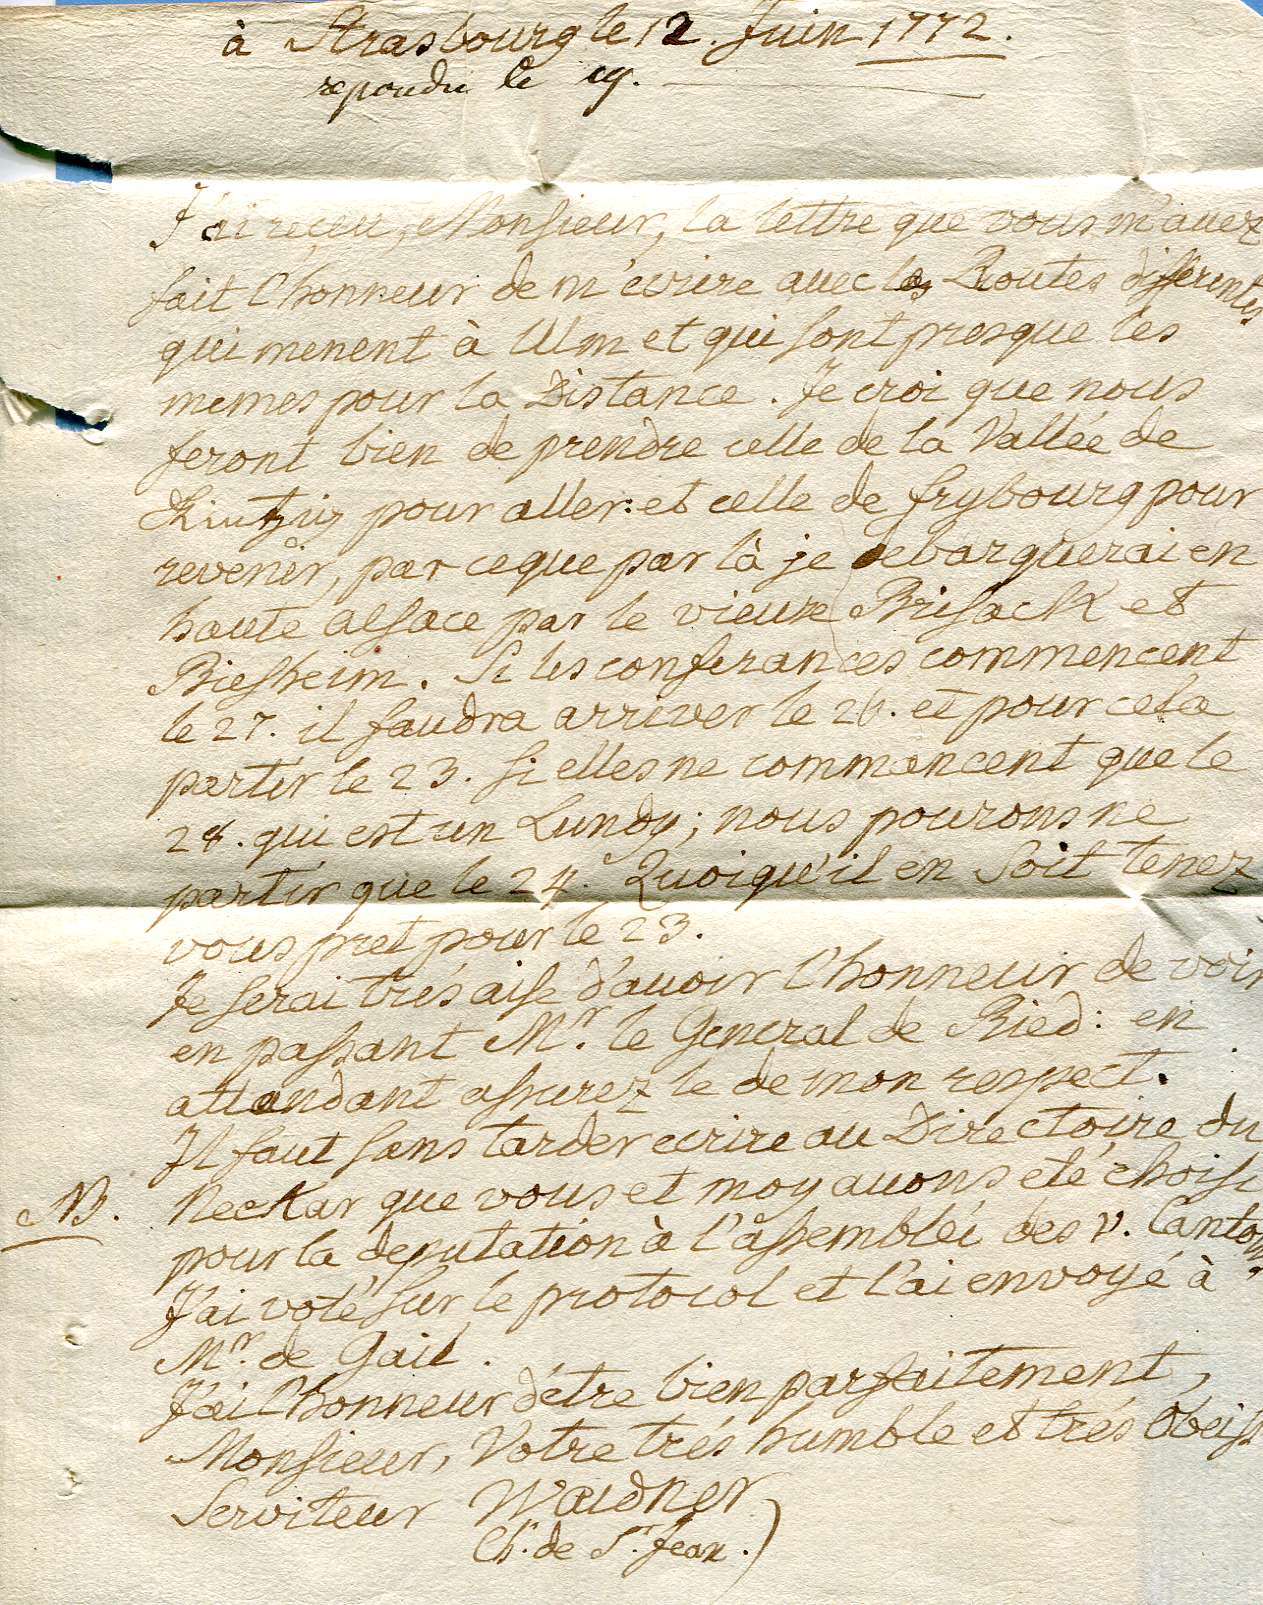 à Strasbourg le 12. Juin 1772.
repondu le 19.
J'ai reçeu, Monsieur, la lettre que vous m'avez
fait l'honneur de m'ecrire avec les Routes differentes
qui menent à Ulm et qui sont presque les
memes pour la Distance. Je croi que nous
feront bien de prendre celle de la Vallée de
Kintzig pour aller: et celle de frybourg pour
revenir, par ceque par là je debarquerai en
haute alsace par le vieux Brisack et
Biesheim. Si les conferances commencent
le 27. il faudra arriver le 26. et pour cela
partir le 23. si elles ne commancent que le
28. qui est un Lundy; nous pourons ne
partir que le 24. Quoiqu'il en soit tenez
vous pret pour le 23.
Je serai trés aise d'avoir l'honneur de voir
en passant Mr. le General de Ried: en
attandant assurez le de mon respect.
Il faut sans tarder ecrire au Directoire du
NB. Neckar que vous et moy avons eté choisi
pour la deputation à l'assembléi des v. Canton.
J'ai voté sur le protocol et l'ai envoyé à
Mr. de Gail.
J'ai l'honneur d'étre bien parfaitement,
Monsieur, Votre trés humble et trés Obeiss
Serviteur Waldner
Ch. de St. Jean.)